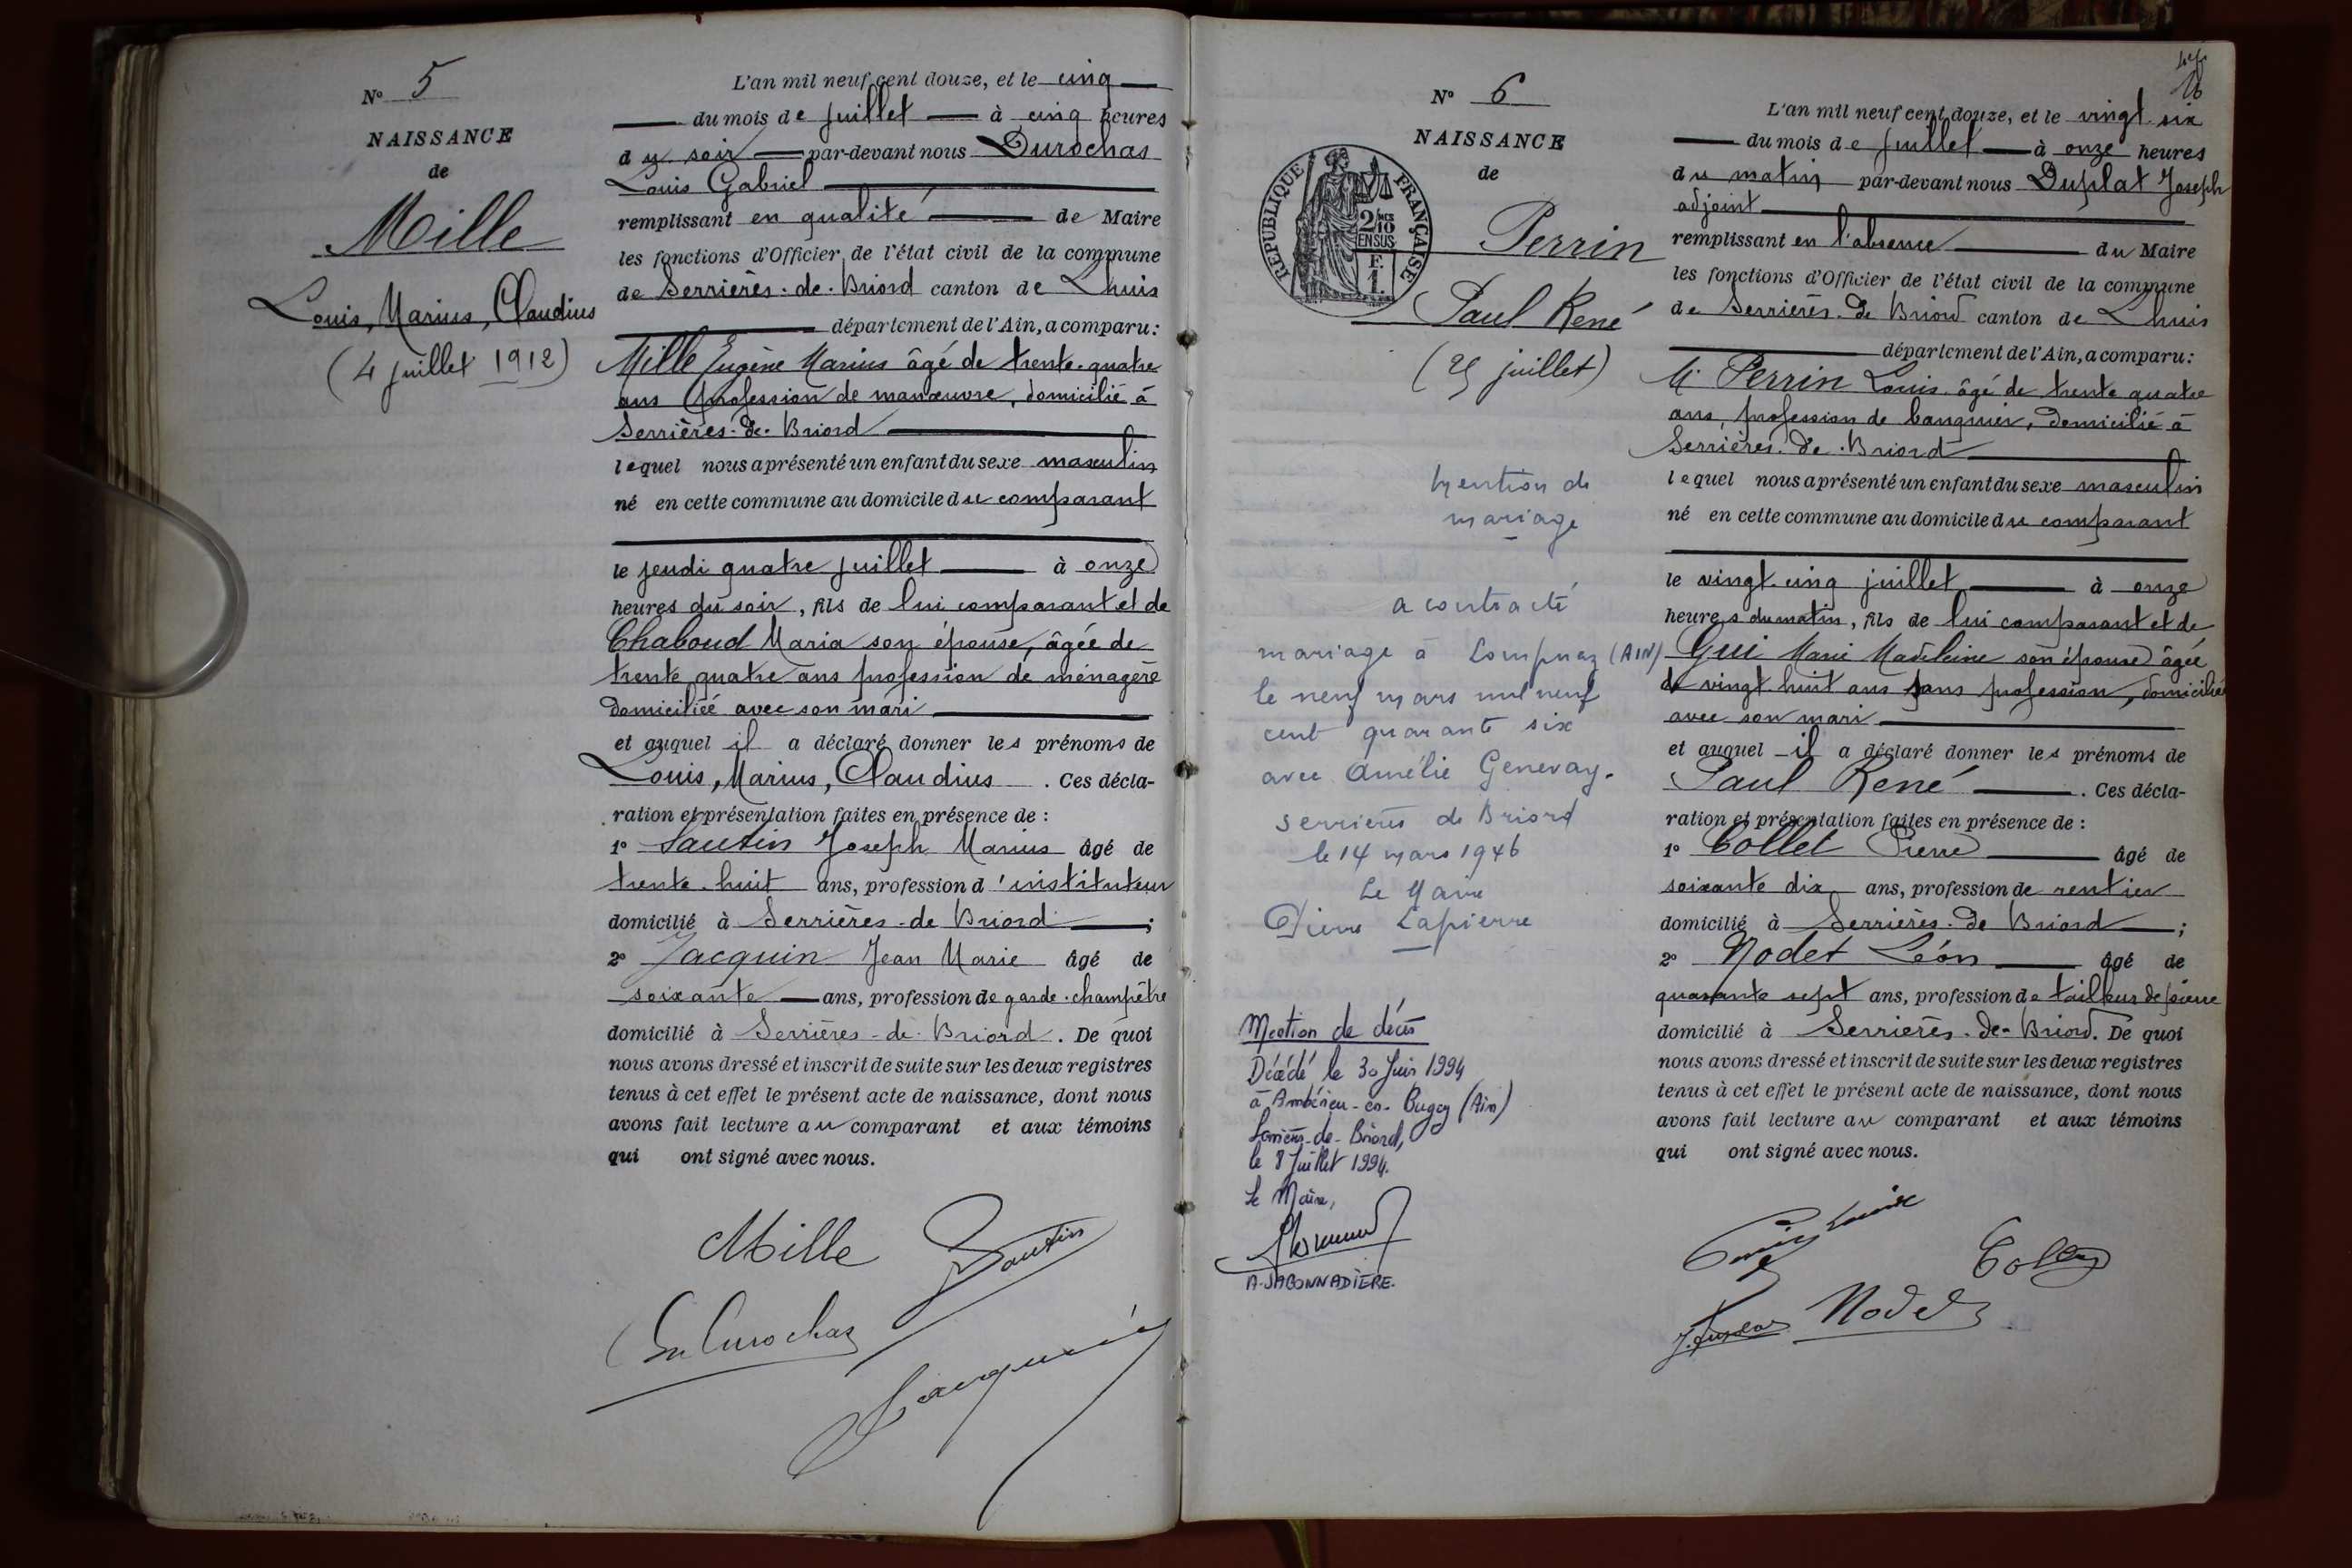 N° 5
NAISSANCE
de
Mille
Louis, Marius, Claudius
(4 juillet 1912)
L'an mil neuf cent douze, et le cinq
du mois de juillet à cinq heures
du soir par-devant nous Durochas
Louis Gabriel
remplissant en qualité de Maire
les fonctions d'Officier de l'état civil de la commune
de Serrières-de-Briord canton de Lhuis
département de l'Ain, a comparu :
Mille Eugène Marius âgé de trente-quatre
ans profession de manœuvre, domicilié à
Serrières-de-Briord
lequel nous a présenté un enfant du sexe masculin
né en cette commune au domicile du comparant
le jeudi quatre juillet à onze
heures du soir, fils de lui comparant et de
Chaboud Maria son épouse, âgée de
trente quatre ans profession de ménagère
domiciliée avec son mari
et auquel il a déclaré donner les prénoms de
Louis, Marius, Claudius. Ces décla-
ration et présentation faites en présence de :
1° Sautin Joseph Marius âgé de
trente-huit ans, profession d'instituteur
domicilié à Serrières-de Briord ;
2° Jacquin Jean Marie âgé de
soixante ans, profession de garde-champêtre
domicilié à Serrières-de-Briord. De quoi
nous avons dressé et inscrit de suite sur les deux registres
tenus à cet effet le présent acte de naissance, dont nous
avons fait lecture au comparant et aux témoins
qui ont signé avec nous.
Mille Sautin
Durochas
Jacquin
16
N° 6
NAISSANCE
de
RÉPUBLIQUE FRANÇAISE
2/10
EN SUS
F.
1.
Perrin
Paul René
(25 juillet)
Mention de
mariage
a contracté
mariage à Lompnaz (AIN)
le neuf mars mil neuf
cent quarante six
avec Amélie Genevay.
Serrières de Briord
le 14 mars 1946
Le Maire
Pierre Lapierre
Mention de décès
Décédé le 30 Juin 1994
à Ambérieu-en-Bugey (Ain)
Serrières-de-Briord,
le 8 Juillet 1994.
Le Maire,
A. JABONNADIÈRE.
L'an mil neuf cent douze, et le vingt six
du mois de juillet à onze heures
du matin par-devant nous Duplat Joseph
adjoint
remplissant en l'absence du Maire
les fonctions d'Officier de l'état civil de la commune
de Serrières-de Briord canton de Lhuis
département de l'Ain, a comparu :
M. Perrin Louis âgé de trente quatre
ans, profession de banquier, domicilié à
Serrières-de-Briord
lequel nous a présenté un enfant du sexe masculin
né en cette commune au domicile du comparant
le vingt cinq juillet à onze
heures du matin, fils de lui comparant et de
Gui Marie Madeleine son épouse âgée
de vingt-huit ans sans profession, domiciliée
avec son mari
et auquel il a déclaré donner les prénoms de
Paul René. Ces décla-
ration et présentation faites en présence de :
1° Collet Pierre âgé de
soixante dix ans, profession de rentier
domicilié à Serrières-de Briord ;
2° Nodet Léon âgé de
quarante sept ans, profession de tailleur de pierre
domicilié à Serrières-de-Briord. De quoi
nous avons dressé et inscrit de suite sur les deux registres
tenus à cet effet le présent acte de naissance, dont nous
avons fait lecture au comparant et aux témoins
qui ont signé avec nous.
Perrin Louis
Collet
J. Duplat Nodet